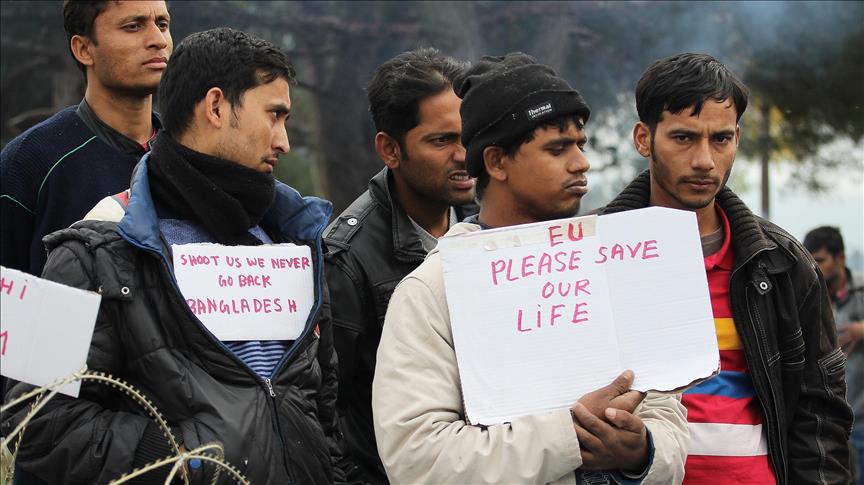 SHOOT US WE NEVER
GO BACK
BANGLADESH
EU
PLEASE SAVE
OUR
LiFE
Thermal
Hi